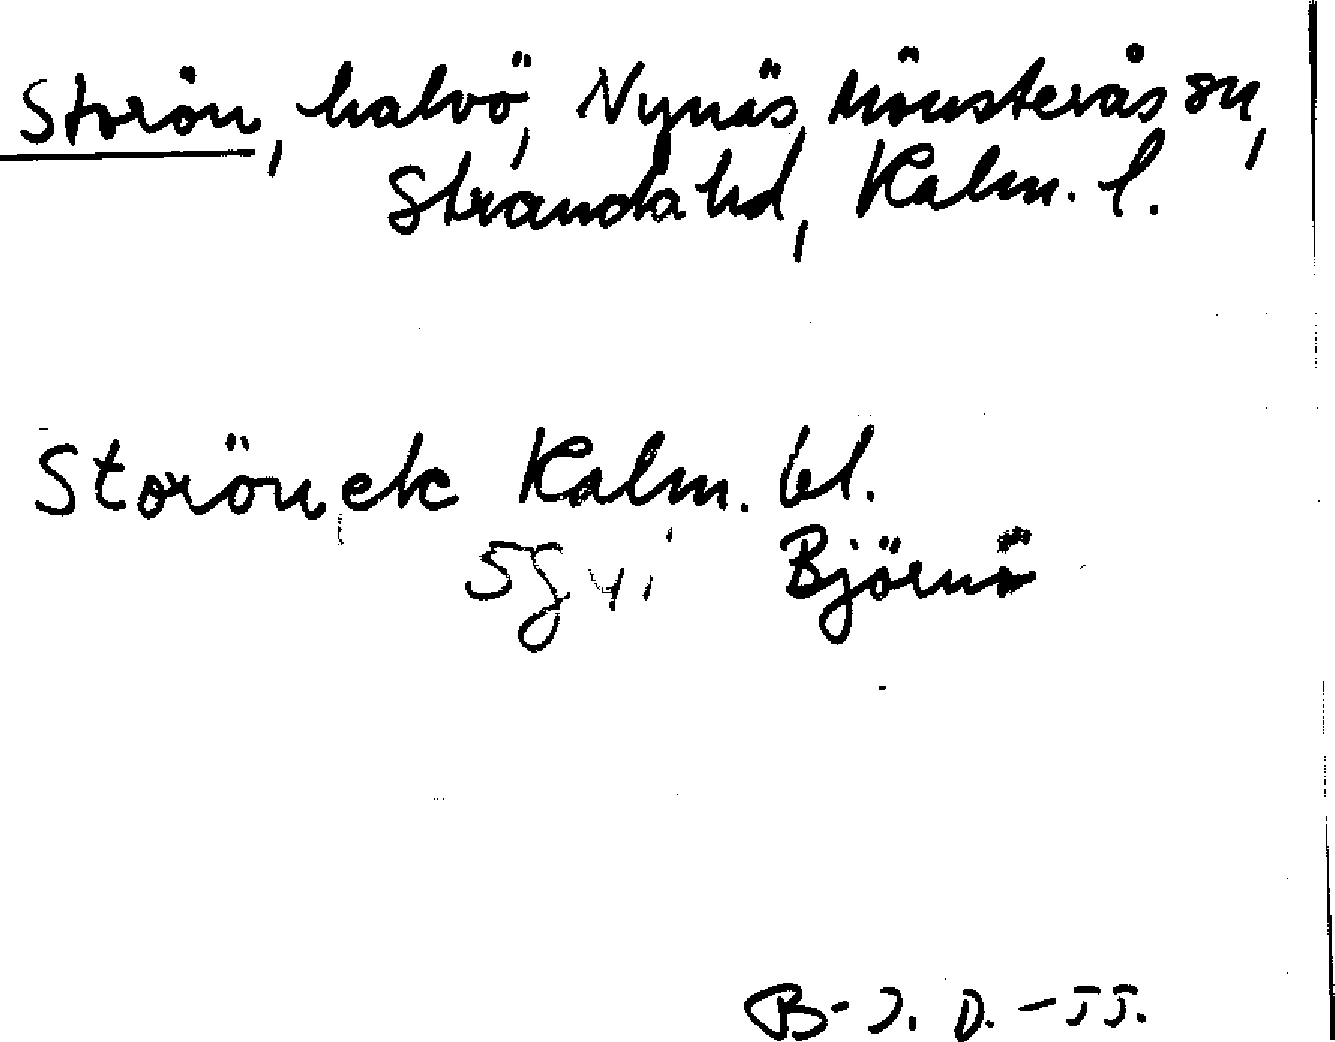 Storön, halvö, Nynäs, Mönsterås sn,
Stranda hd, Kalm. l.
Storön, ek Kalm. bl.
5g yi Björnö
B-J. D. -55.